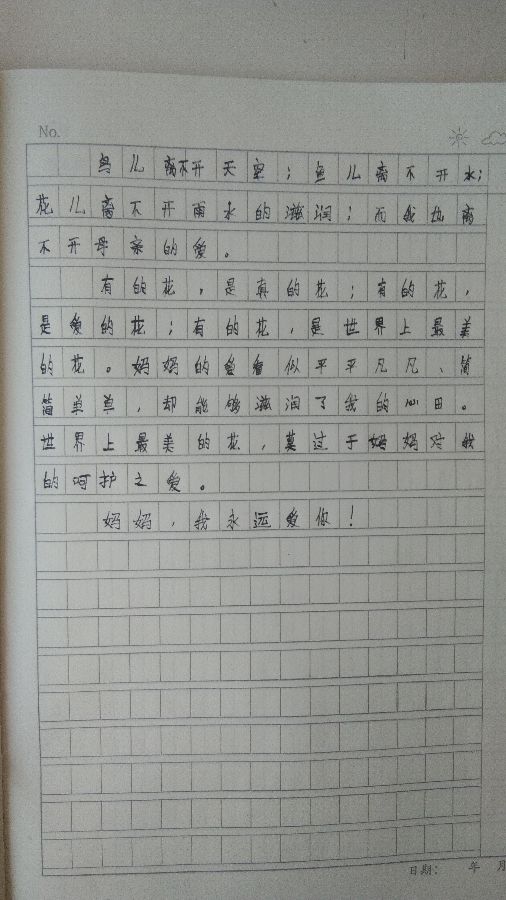 No.
鸟儿离不开天空；鱼儿离不开水；
花儿离不开雨水的滋润；而我也离
不开母亲的爱。
有的花，是真的花；有的花，
是爱的花；有的花，是世界上最美
的花。妈妈的爱看似平平凡凡、简
简单单，却能够滋润了我的心田。
世界上最美的花，莫过于妈妈对我
的呵护之爱。
妈妈，我永远爱你！
日期： 年 月